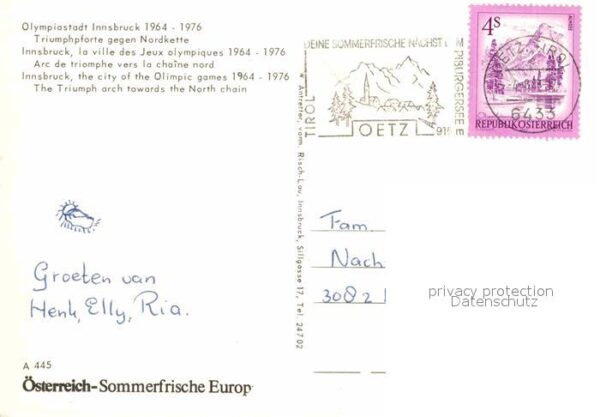 Olympiastadt Innsbruck 1964 - 1976
Triumphpforte gegen Nordkette
Innsbruck, la ville des Jeux olympiques 1964 - 1976
Arc de triomphe vers la chaîne nord
Innsbruck, the city of the Olimpic games 1964 - 1976
The Triumph arch towards the North chain
Groeten van
Henk, Elly, Ria.
A 445
Österreich-Sommerfrische Europ
Antretter, vorm. Risch-Lau, Innsbruck, Sillgasse 17, Tel. 24702
DEINE SOMMERFRISCHE NÄCHST DEM
PIBURGERSEE
TIROL
OETZ
915
4S
REPUBLIK ÖSTERREICH
OETZ, TIROL
6433
Fam
Nach
3082
privacy protection
Datenschutz